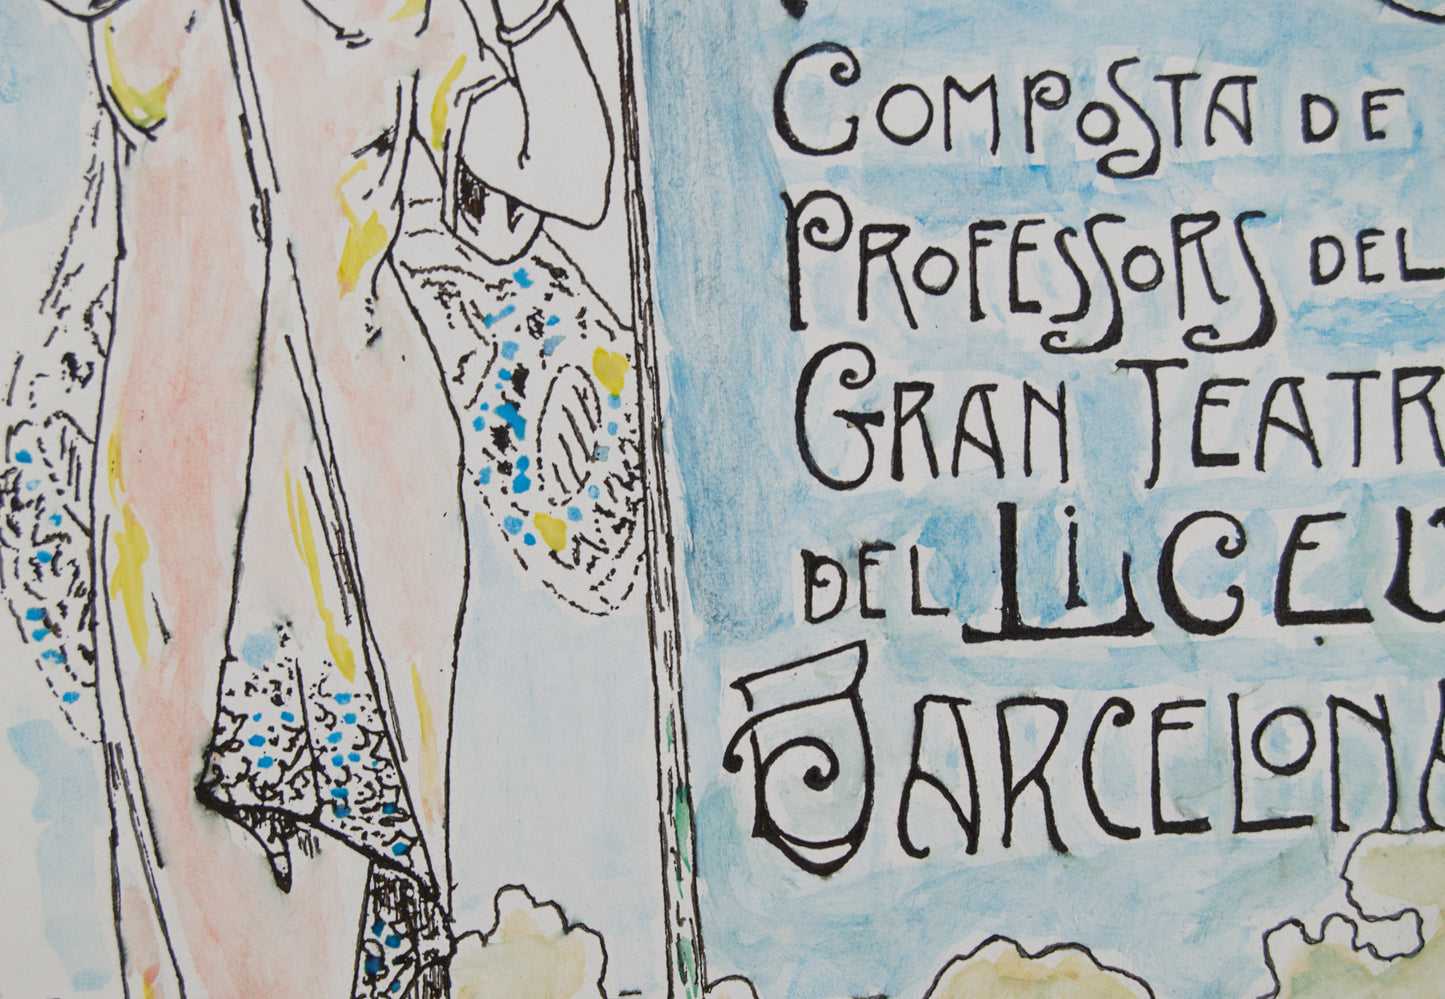 COMPOSTA DE
PROFESSORS DEL
GRAN TEATR
DEL LICEU
BARCELONA